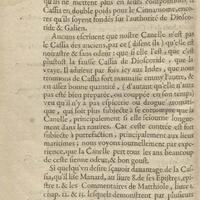 qu'ils ne mettent plus en leurs compositions, la
Cassia en double poids pour le Cinnamome, enco-
res qu'ils soyent fondés sur l'authorité de Diosco-
ride & Galien.
Aucuns escriuent que nostre Canelle n'est pas
le Cassia des anciens, par ce (disent ils) qu'elle est
noirastre & sans odeur: que si elle l'est, que c'est
plustost la fausse Cassia de Dioscoride, que la
vraye. Il aduient par fois icy aux Indes, que nous
trouuons de la Cassia fort mauuaise entmy l'autre, &
en assez bonne quantité, (d'autant qu'elle n'aura
pas esté bien preparée, ou couppée en son temps)
voyre qu'il n'y a pas espiccerie ou drogue aromati-
que, qui soit plus subiecte à se corrompre que la
Canelle; principalement si elle seiourne longue-
ment dans les nauires. Car ceste contrée est fort
subiecte à putrefaction, principalement aux lieux
maritimes: nous voyons iournellement par expe-
rience, que la Canelle pert tous les ans beaucoup
de ceste sienne odeur, & bon goust.
Si quelqu'vn desire sçauoir dauantage de la Cas-
sia, qu'il lise Manard, au liure & des Epistres, epi-
stre 1. & les Commentaires de Matthiole, liure 1.
chap. 12. & 13. lesquels demonstrent par plusieurs